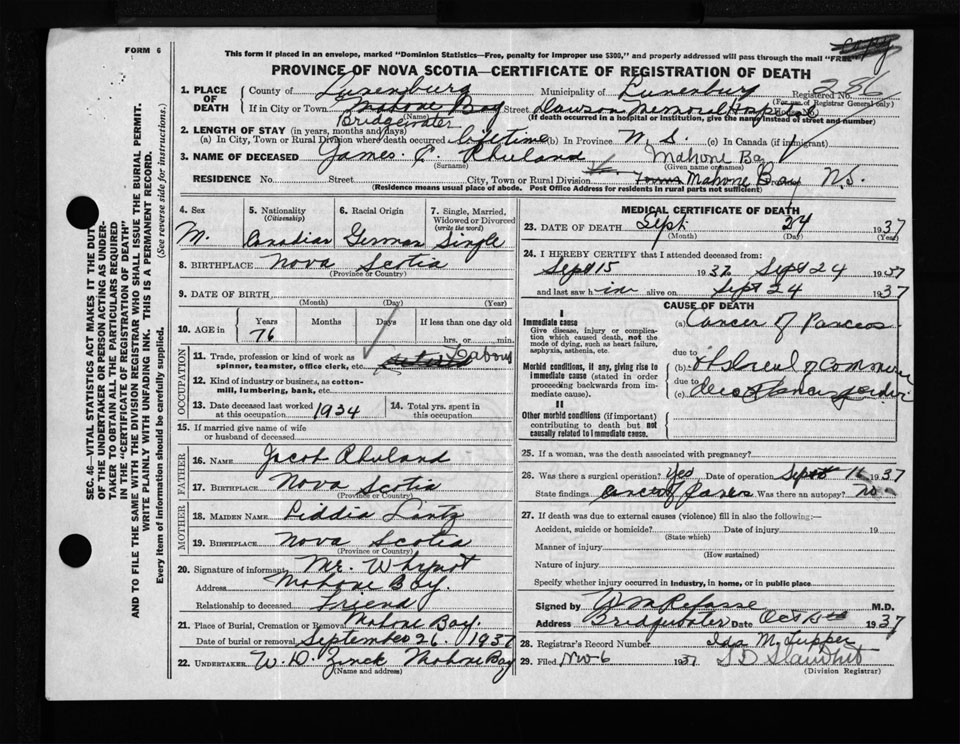 FORM 6
This form if placed in an envelope, marked "Dominion Statistics—Free, penalty for improper use $300," and properly addressed will pass through the mail "FREE"
PROVINCE OF NOVA SCOTIA—CERTIFICATE OF REGISTRATION OF DEATH
Registered No. 286
(For use of Registrar General only)
1. PLACE OF DEATH
County of Lunenburg Municipality of Lunenburg
If in City or Town Mahone Bay Street Dawson Memorial Hospital
(Name) (If death occurred in a hospital or institution, give the name instead of street and number)
Bridgewater
2. LENGTH OF STAY (in years, months and days)
(a) In City, Town or Rural Division where death occurred lifetime (b) In Province N. S. (c) In Canada (if immigrant)
3. NAME OF DECEASED James E. Rhuland Mahone Bay
(Surname) (Given name or names)
RESIDENCE No. Street City, Town or Rural Division Town Mahone Bay N.S.
(Residence means usual place of abode. Post Office Address for residents in rural parts not sufficient)
SEC. 46—VITAL STATISTICS ACT MAKES IT THE DUTY
OF THE UNDERTAKER OR PERSON ACTING AS UNDER-
TAKER TO OBTAIN ALL THE PARTICULARS REQUIRED
IN THE "CERTIFICATE OF REGISTRATION OF DEATH"
AND TO FILE THE SAME WITH THE DIVISION REGISTRAR WHO SHALL ISSUE THE BURIAL PERMIT.
WRITE PLAINLY WITH UNFADING INK. THIS IS A PERMANENT RECORD.
Every item of information should be carefully supplied. (See reverse side for instructions.)
4. Sex 5. Nationality 6. Racial Origin 7. Single, Married,
(Citizenship) Widowed or Divorced
(write the word)
M. Canadian German Single
8. BIRTHPLACE Nova Scotia
(Province or Country)
9. DATE OF BIRTH
(Month) (Day) (Year)
10. AGE in Years Months Days If less than one day old
76 hrs. or min.
OCCUPATION
11. Trade, profession or kind of work as
spinner, teamster, office clerk, etc. Labour
12. Kind of industry or business, as cotton-
mill, lumbering, bank, etc.
13. Date deceased last worked
at this occupation 1934
14. Total yrs. spent in
this occupation
15. If married give name of wife
or husband of deceased
FATHER
16. NAME Jacob Rhuland
17. BIRTHPLACE Nova Scotia
(Province or Country)
MOTHER
18. MAIDEN NAME Liddia Lantz
19. BIRTHPLACE Nova Scotia
(Province or Country)
20. Signature of informant Mr. Whynot
Address Mahone Bay.
Relationship to deceased Friend
21. Place of Burial, Cremation or Removal Mahone Bay.
Date of burial or removal September 26. 1937
22. UNDERTAKER W. D. Zinck Mahone Bay
(Name and address)
MEDICAL CERTIFICATE OF DEATH
23. DATE OF DEATH Sept. 24 1937
(Month) (Day) (Year)
24. I HEREBY CERTIFY that I attended deceased from:
Sept 15 1937 Sept 24 1937
and last saw him alive on Sept 24 1937
CAUSE OF DEATH
I
Immediate cause
Give disease, injury or complica-
tion which caused death, not the
mode of dying, such as heart failure,
asphyxia, asthenia, etc.
(a) Cancer of Pancreas
due to
Morbid conditions, if any, giving rise to
immediate cause (stated in order
proceeding backwards from im-
mediate cause).
(b)
due to
(c)
II
Other morbid conditions (if important)
contributing to death but not
causally related to immediate cause.
25. If a woman, was the death associated with pregnancy?
26. Was there a surgical operation? Yes Date of operation Sept 16 1937
State findings Cancer of Was there an autopsy? no
27. If death was due to external causes (violence) fill in also the following:—
Accident, suicide or homicide? Date of injury 19
(State which)
Manner of injury
(How sustained)
Nature of injury
Specify whether injury occurred in industry, in home, or in public place
Signed by M.D.
Address Bridgewater Date Oct 1937
28. Registrar's Record Number Ida M. Tupper
29. Filed Nov 6 1937
(Division Registrar)